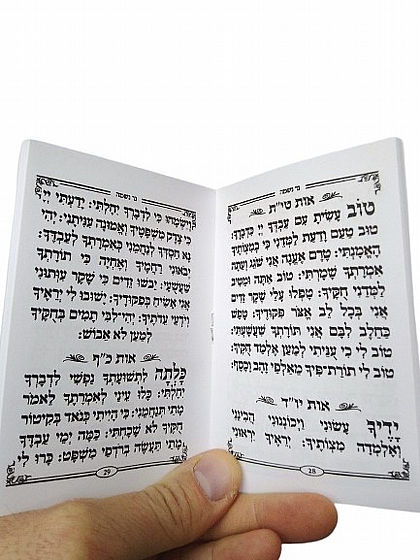 נר נשמה
אות טי״ת
טוֹב עָשִׂיתָ עִם עַבְדְּךָ יְיָ כִּדְבָרֶךָ:
טוּב טַעַם וָדַעַת לַמְּדֵנִי כִּי בְמִצְוֹתֶיךָ
הֶאֱמָנְתִּי: טֶרֶם אֶעֱנֶה אֲנִי שֹׁגֵג וְעַתָּה
אִמְרָתְךָ שָׁמָרְתִּי: טוֹב אַתָּה וּמֵטִיב
לַמְּדֵנִי חֻקֶּיךָ: טָפְלוּ עָלַי שֶׁקֶר זֵדִים
אֲנִי בְּכָל לֵב אֶצֹּר פִּקּוּדֶיךָ: טָפַשׁ
כַּחֵלֶב לִבָּם אֲנִי תּוֹרָתְךָ שִׁעֲשָׁעְתִּי:
טוֹב לִי כִי עֻנֵּיתִי לְמַעַן אֶלְמַד חֻקֶּיךָ:
טוֹב לִי תוֹרַת־פִּיךָ מֵאַלְפֵי זָהָב וָכָסֶף:
אות יו״ד
יָדֶיךָ עָשׂוּנִי וַיְכוֹנְנוּנִי הֲבִינֵנִי
וְאֶלְמְדָה מִצְוֹתֶיךָ: יְרֵאֶיךָ יִרְאוּנִי
28
נר נשמה
וְיִשְׂמָחוּ כִּי לִדְבָרְךָ יִחָלְתִּי: יָדַעְתִּי יְיָ
כִּי צֶדֶק מִשְׁפָּטֶיךָ וֶאֱמוּנָה עִנִּיתָנִי: יְהִי
נָא חַסְדְּךָ לְנַחֲמֵנִי כְּאִמְרָתְךָ לְעַבְדֶּךָ:
יְבֹאוּנִי רַחֲמֶיךָ וְאֶחְיֶה כִּי תוֹרָתְךָ
שַׁעֲשֻׁעָי: יֵבֹשׁוּ זֵדִים כִּי שֶׁקֶר עִוְּתוּנִי
אֲנִי אָשִׂיחַ בְּפִקּוּדֶיךָ: יָשׁוּבוּ לִי יְרֵאֶיךָ
וְיֹדְעֵי עֵדֹתֶיךָ: יְהִי־לִבִּי תָמִים בְּחֻקֶּיךָ
לְמַעַן לֹא אֵבוֹשׁ:
אות כ״ף
כָּלְתָה לִתְשׁוּעָתְךָ נַפְשִׁי לִדְבָרְךָ
יִחָלְתִּי: כָּלוּ עֵינַי לְאִמְרָתֶךָ לֵאמֹר
מָתַי תְּנַחֲמֵנִי: כִּי הָיִיתִי כְּנֹאד בְּקִיטוֹר
חֻקֶּיךָ לֹא שָׁכָחְתִּי: כַּמָּה יְמֵי עַבְדֶּךָ
מָתַי תַּעֲשֶׂה בְרֹדְפַי מִשְׁפָּט: כָּרוּ לִי
29